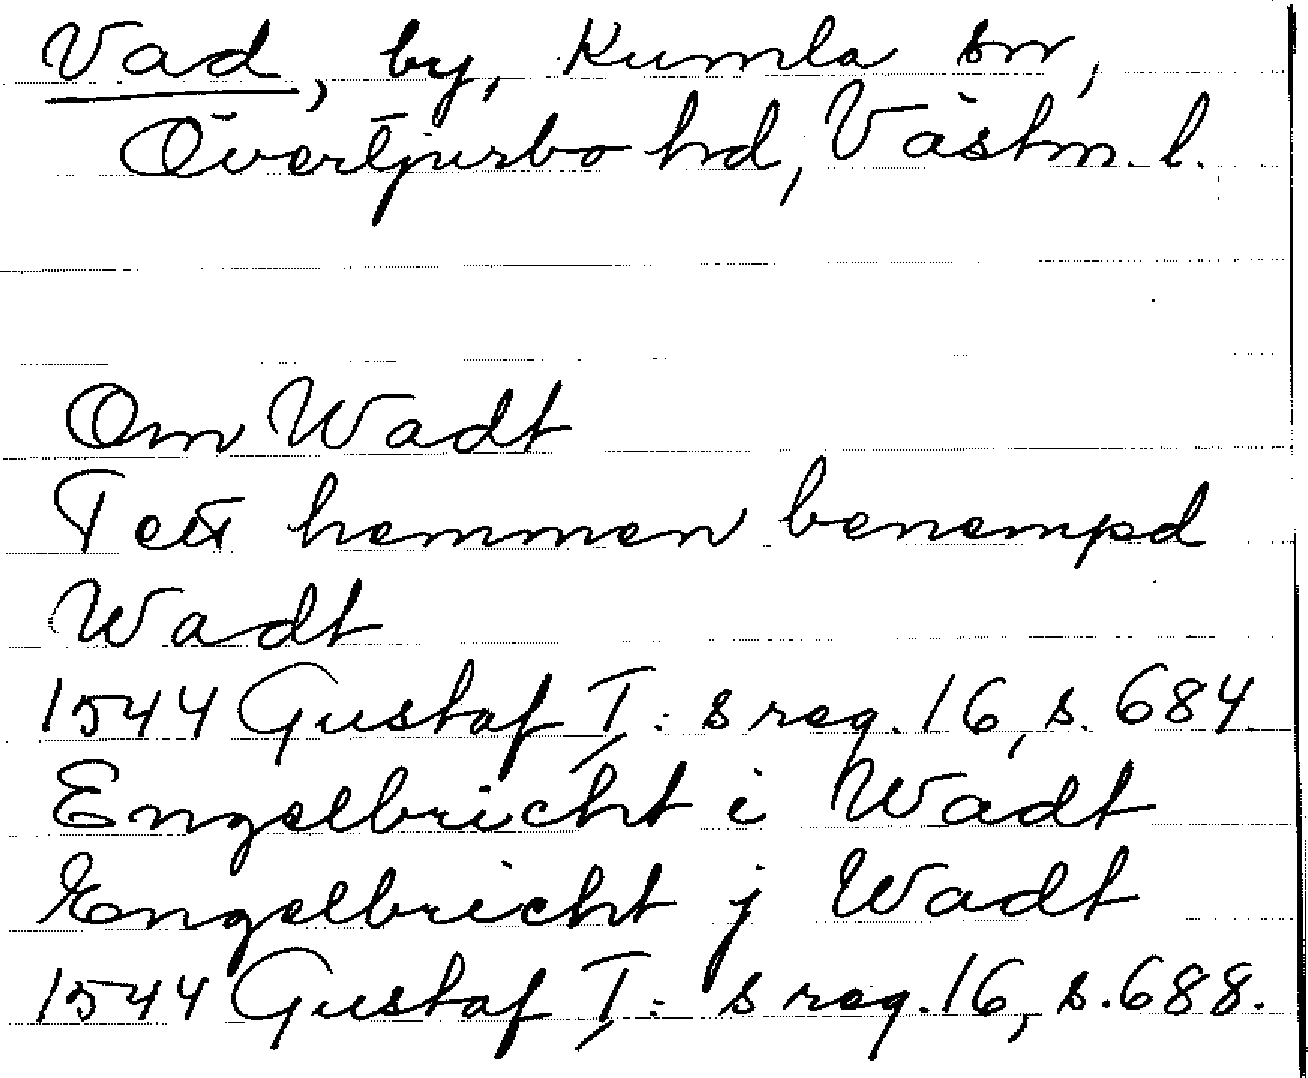 Vad, by, Kumla sn,
Övertjurbo hd, Västm. l.
Om Wadt
Tett hemmen benempd
Wadt
1544 Gustaf I: s reg. 16, s. 684
Engelbricht i Wadt
Engelbricht j Wadt
1544 Gustaf I: s reg. 16, s. 688.